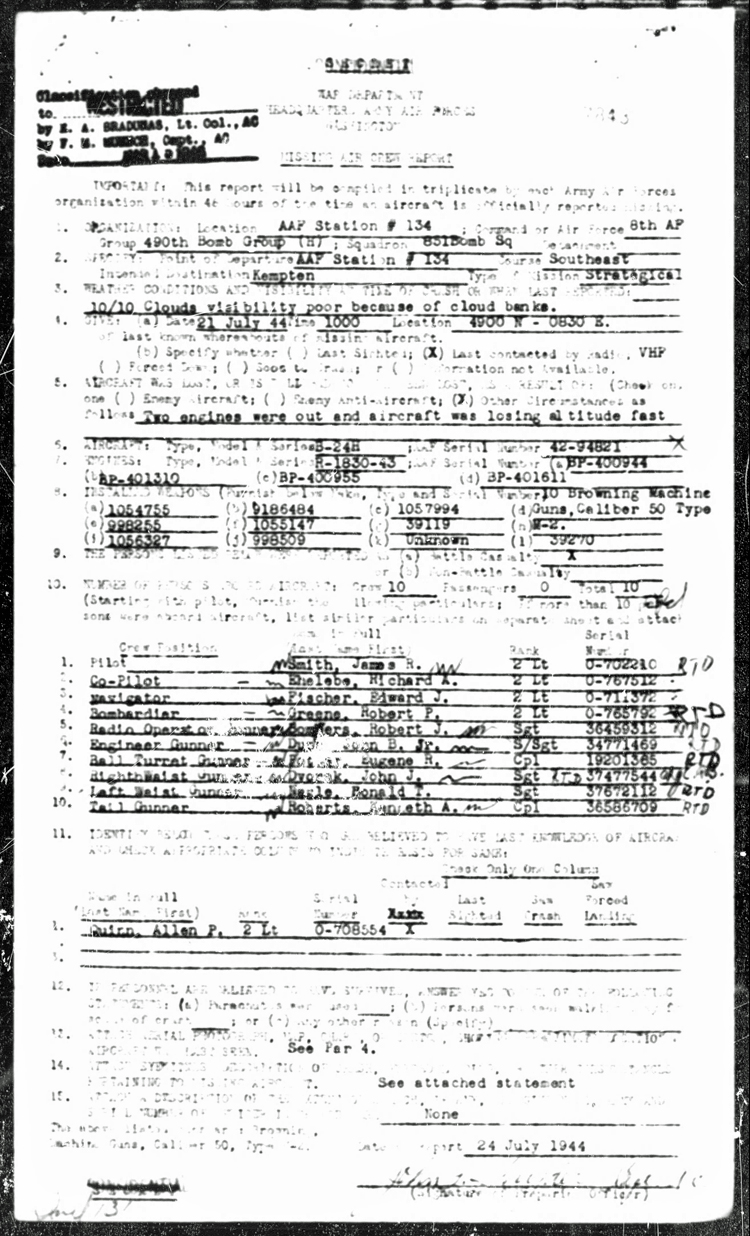 SECRET
Classification changed
to RESTRICTED
by E. A. BRADUNAS, Lt. Col., AC
by F. M. Capt., AC
Date
WAR DEPARTMENT
HEADQUARTERS, ARMY AIR FORCES
WASHINGTON
MISSING AIR CREW REPORT
IMPORTANT: This report will be compiled in triplicate by each Army Air Forces
organization within 48 hours of the time an aircraft is officially reported missing.
1. ORGANIZATION: Location AAF Station # 134 ; Command or Air Force 8th AF
Group 490th Bomb Group (H) ; Squadron 851Bomb Sq Detachment
2. SPECIFY: Point of Departure AAF Station # 134 Course Southeast
Intended Destination Kempten Type of Mission Strategical
3. WEATHER CONDITIONS AND VISIBILITY AT TIME OF CRASH OR WHEN LAST REPORTED:
10/10 Clouds visibility poor because of cloud banks.
4. GIVE: (a) Date 21 July 44 Time 1000 Location 4900 N - 0830 E.
of last known whereabouts of missing aircraft.
(b) Specify whether ( ) Last Sighted; (X) Last contacted by Radio, VHF
( ) Forced Down; ( ) Seen to Crash; or ( ) Information not Available.
5. AIRCRAFT WAS LOST, OR IS BELIEVED TO HAVE BEEN LOST, AS A RESULT OF: (Check only
one ( ) Enemy Aircraft; ( ) Enemy Anti-Aircraft; (X) Other Circumstances as
follows Two engines were out and aircraft was losing altitude fast
6. AIRCRAFT: Type, Model & Series B-24H ; AAF Serial Number 42-94821
7. ENGINES: Type, Model & Series R-1830-43 ; AAF Serial Number (a) BP-400944
(b) BP-401310 (c) BP-400955 (d) BP-401611
8. INSTALLED WEAPONS (Furnish below Make, Type and Serial Number) 10 Browning Machine
(a) 1054755 (b) 9186484 (c) 1057994 (d) Guns, Caliber 50 Type
(e) 998255 (f) 1055147 (g) 39119 (h) M-2.
(i) 1056327 (j) 998509 (k) Unknown (l) 39270
9. THE PERSONS LISTED BELOW WERE REPORTED AS (a) Battle Casualty X
or (b) Non-Battle Casualty
10. NUMBER OF PERSONS ABOARD AIRCRAFT: Crew 10 Passengers 0 Total 10
(Starting with pilot, furnish the following particulars; If more than 10 per-
sons were aboard aircraft, list similar particulars on separate sheet and attach
Name in Full Serial
Crew Position (Last Name First) Rank Number
1. Pilot Smith, James R. 2 Lt 0-702210 RTD
2. Co-Pilot Ehelebe, Richard K. 2 Lt 0-767512
3. Navigator Fischer, Edward J. 2 Lt 0-711372
4. Bombardier Greene, Robert P. 2 Lt 0-765792 RTD
5. Radio Operator Gunner Robert J. Sgt 36459312 RTD
6. Engineer Gunner John B. Jr. S/Sgt 34771469 RTD
7. Ball Turret Gunner Eugene R. Cpl 19201365 RTD
8. RightWaist Gunner Dvorak, John J. Sgt RTD 37477544
9. Left Waist Gunner Nagle, Donald T. Sgt 37672112 RTD
10. Tail Gunner Roberts, Kenneth A. Cpl 36586709 RTD
11. IDENTIFY BELOW THOSE PERSONS WHO ARE BELIEVED TO HAVE LAST KNOWLEDGE OF AIRCRAFT
AND CHECK APPROPRIATE COLUMN TO INDICATE BASIS FOR SAME:
Check Only One Column
Contacted Saw
Name in Full Serial by Last Saw Forced
(Last Name First) Rank Number Radio Sighted Crash Landing
1. Quinn, Allen P. 2 Lt 0-708554 X
2.
3.
12. IF PERSONNEL ARE BELIEVED TO HAVE SURVIVED, ANSWER YES TO ONE OF THE FOLLOWING
STATEMENTS: (a) Parachutes were used ; (b) Persons were seen walking away from
scene of crash ; or (c) Any other reason (Specify)
13. ATTACH AERIAL PHOTOGRAPH, MAP, CHART, OR SKETCH, SHOWING APPROXIMATE LOCATION
AIRCRAFT WAS LAST SEEN. See Par 4.
14. ATTACH EYEWITNESS DESCRIPTION OF
PERTAINING TO MISSING AIRCRAFT. See attached statement
15. ATTACH A DESCRIPTION OF THE
None
The above listed are Browning
Machine Guns, Caliber 50, Type M-2. Date of Report 24 July 1944
(Signature of Preparing Officer)